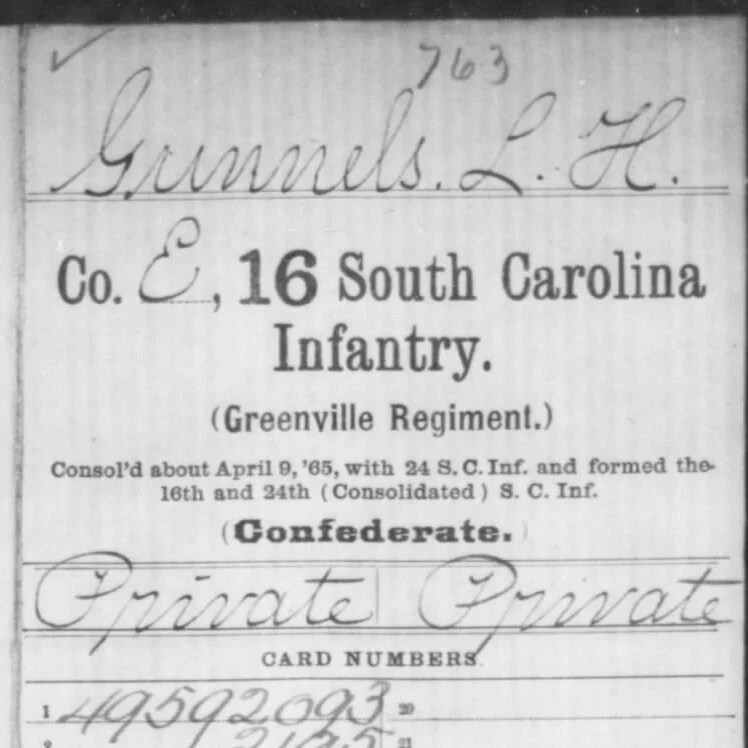 763
Gunnels. L. H.
Co. E, 16 South Carolina
Infantry.
(Greenville Regiment.)
Consol'd about April 9, '65, with 24 S. C. Inf. and formed the
16th and 24th (Consolidated) S. C. Inf.
(Confederate.)
Private Private
CARD NUMBERS.
1 49592093 20
2 2125 21